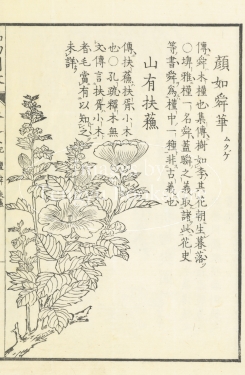 顔如舜華
ムクゲ
傳舜木槿也集傳樹如李其花朝生暮落
○埤雅槿一名舜蓋瞬之義取諸此花史
等書舜爲槿中一種非古義也
山有扶蘇
傳扶蘇扶胥小木
也○孔疏釋木無
文傳言扶胥小木
者毛當有以知之
未詳